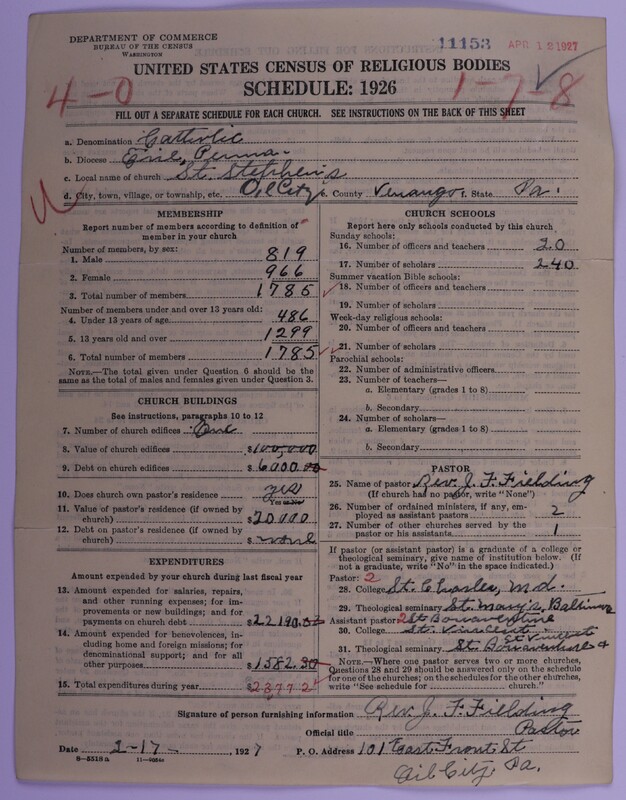 DEPARTMENT OF COMMERCE
BUREAU OF THE CENSUS
WASHINGTON
11153 APR 12 1927
UNITED STATES CENSUS OF RELIGIOUS BODIES
SCHEDULE: 1926
4-0
1-7-8
FILL OUT A SEPARATE SCHEDULE FOR EACH CHURCH. SEE INSTRUCTIONS ON THE BACK OF THIS SHEET
a. Denomination Catholic
b. Diocese Erie, Penna.
c. Local name of church St. Stephen's
d. City, town, village, or township, etc. Oil City e. County Venango f. State Pa.
MEMBERSHIP
Report number of members according to definition of member in your church
Number of members, by sex:
1. Male 819
2. Female 966
3. Total number of members 1785
Number of members under and over 13 years old:
4. Under 13 years of age 486
5. 13 years old and over 1299
6. Total number of members 1785
NOTE.—The total given under Question 6 should be the same as the total of males and females given under Question 3.
CHURCH BUILDINGS
See instructions, paragraphs 10 to 12
7. Number of church edifices One
8. Value of church edifices $100,000
9. Debt on church edifices $6000.00
10. Does church own pastor's residence yes
11. Value of pastor's residence (if owned by church) $20000
12. Debt on pastor's residence (if owned by church) $none
EXPENDITURES
Amount expended by your church during last fiscal year
13. Amount expended for salaries, repairs, and other running expenses; for improvements or new buildings; and for payments on church debt $22190.
14. Amount expended for benevolences, including home and foreign missions; for denominational support; and for all other purposes 1582.30
15. Total expenditures during year $23772
CHURCH SCHOOLS
Report here only schools conducted by this church
Sunday schools:
16. Number of officers and teachers 20
17. Number of scholars 240
Summer vacation Bible schools:
18. Number of officers and teachers
19. Number of scholars
Week-day religious schools:
20. Number of officers and teachers
21. Number of scholars
Parochial schools:
22. Number of administrative officers
23. Number of teachers—
a. Elementary (grades 1 to 8)
b. Secondary
24. Number of scholars—
a. Elementary (grades 1 to 8)
b. Secondary
PASTOR
25. Name of pastor Rev. J. F. Fielding
(If church has no pastor, write "None")
26. Number of ordained ministers, if any, employed as assistant pastors 2
27. Number of other churches served by the pastor or his assistants 1
If pastor (or assistant pastor) is a graduate of a college or theological seminary, give name of institution below. (If not a graduate, write "No" in the space indicated.)
Pastor: 2
28. College St. Charles, Md.
29. Theological seminary St. Mary's, Baltimore
Assistant pastor: 2 St Bonaventure
30. College St. Vincent
31. Theological seminary St. Bonaventure & St Vincent
NOTE.—Where one pastor serves two or more churches, Questions 28 and 29 should be answered only on the schedule for one of the churches; on the schedules for the other churches, write "See schedule for church."
Signature of person furnishing information Rev. J. F. Fielding
Official title Pastor
Date 2-17-, 1927 P. O. Address 101 East Front St
Oil City, Pa.
8—5518a 11—9884c